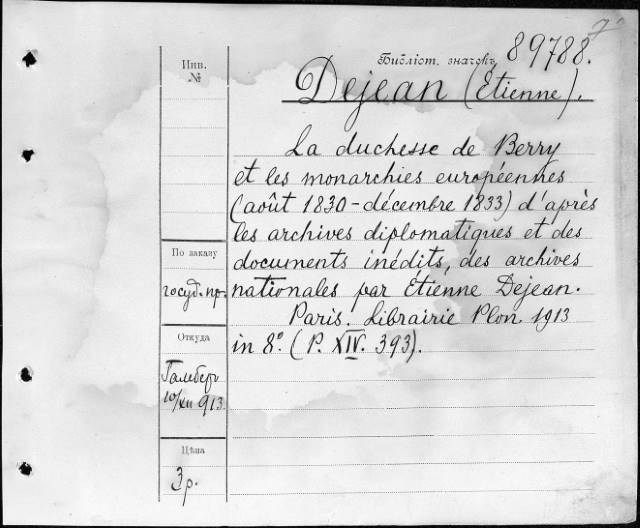 Инв.
№
Библіот. значокъ 89788.
Dejean (Etienne).
La duchesse de Berry
et les monarchies européennes
(août 1830 - décembre 1833) d'après
les archives diplomatiques et des
documents inédits, des archives
nationales par Etienne Dejean.
Paris. Librairie Plon 1913
in 8.° (P. XIV. 393).
По заказу
госуд. пр.
Откуда
10/XII 913
Цѣна
3 р.